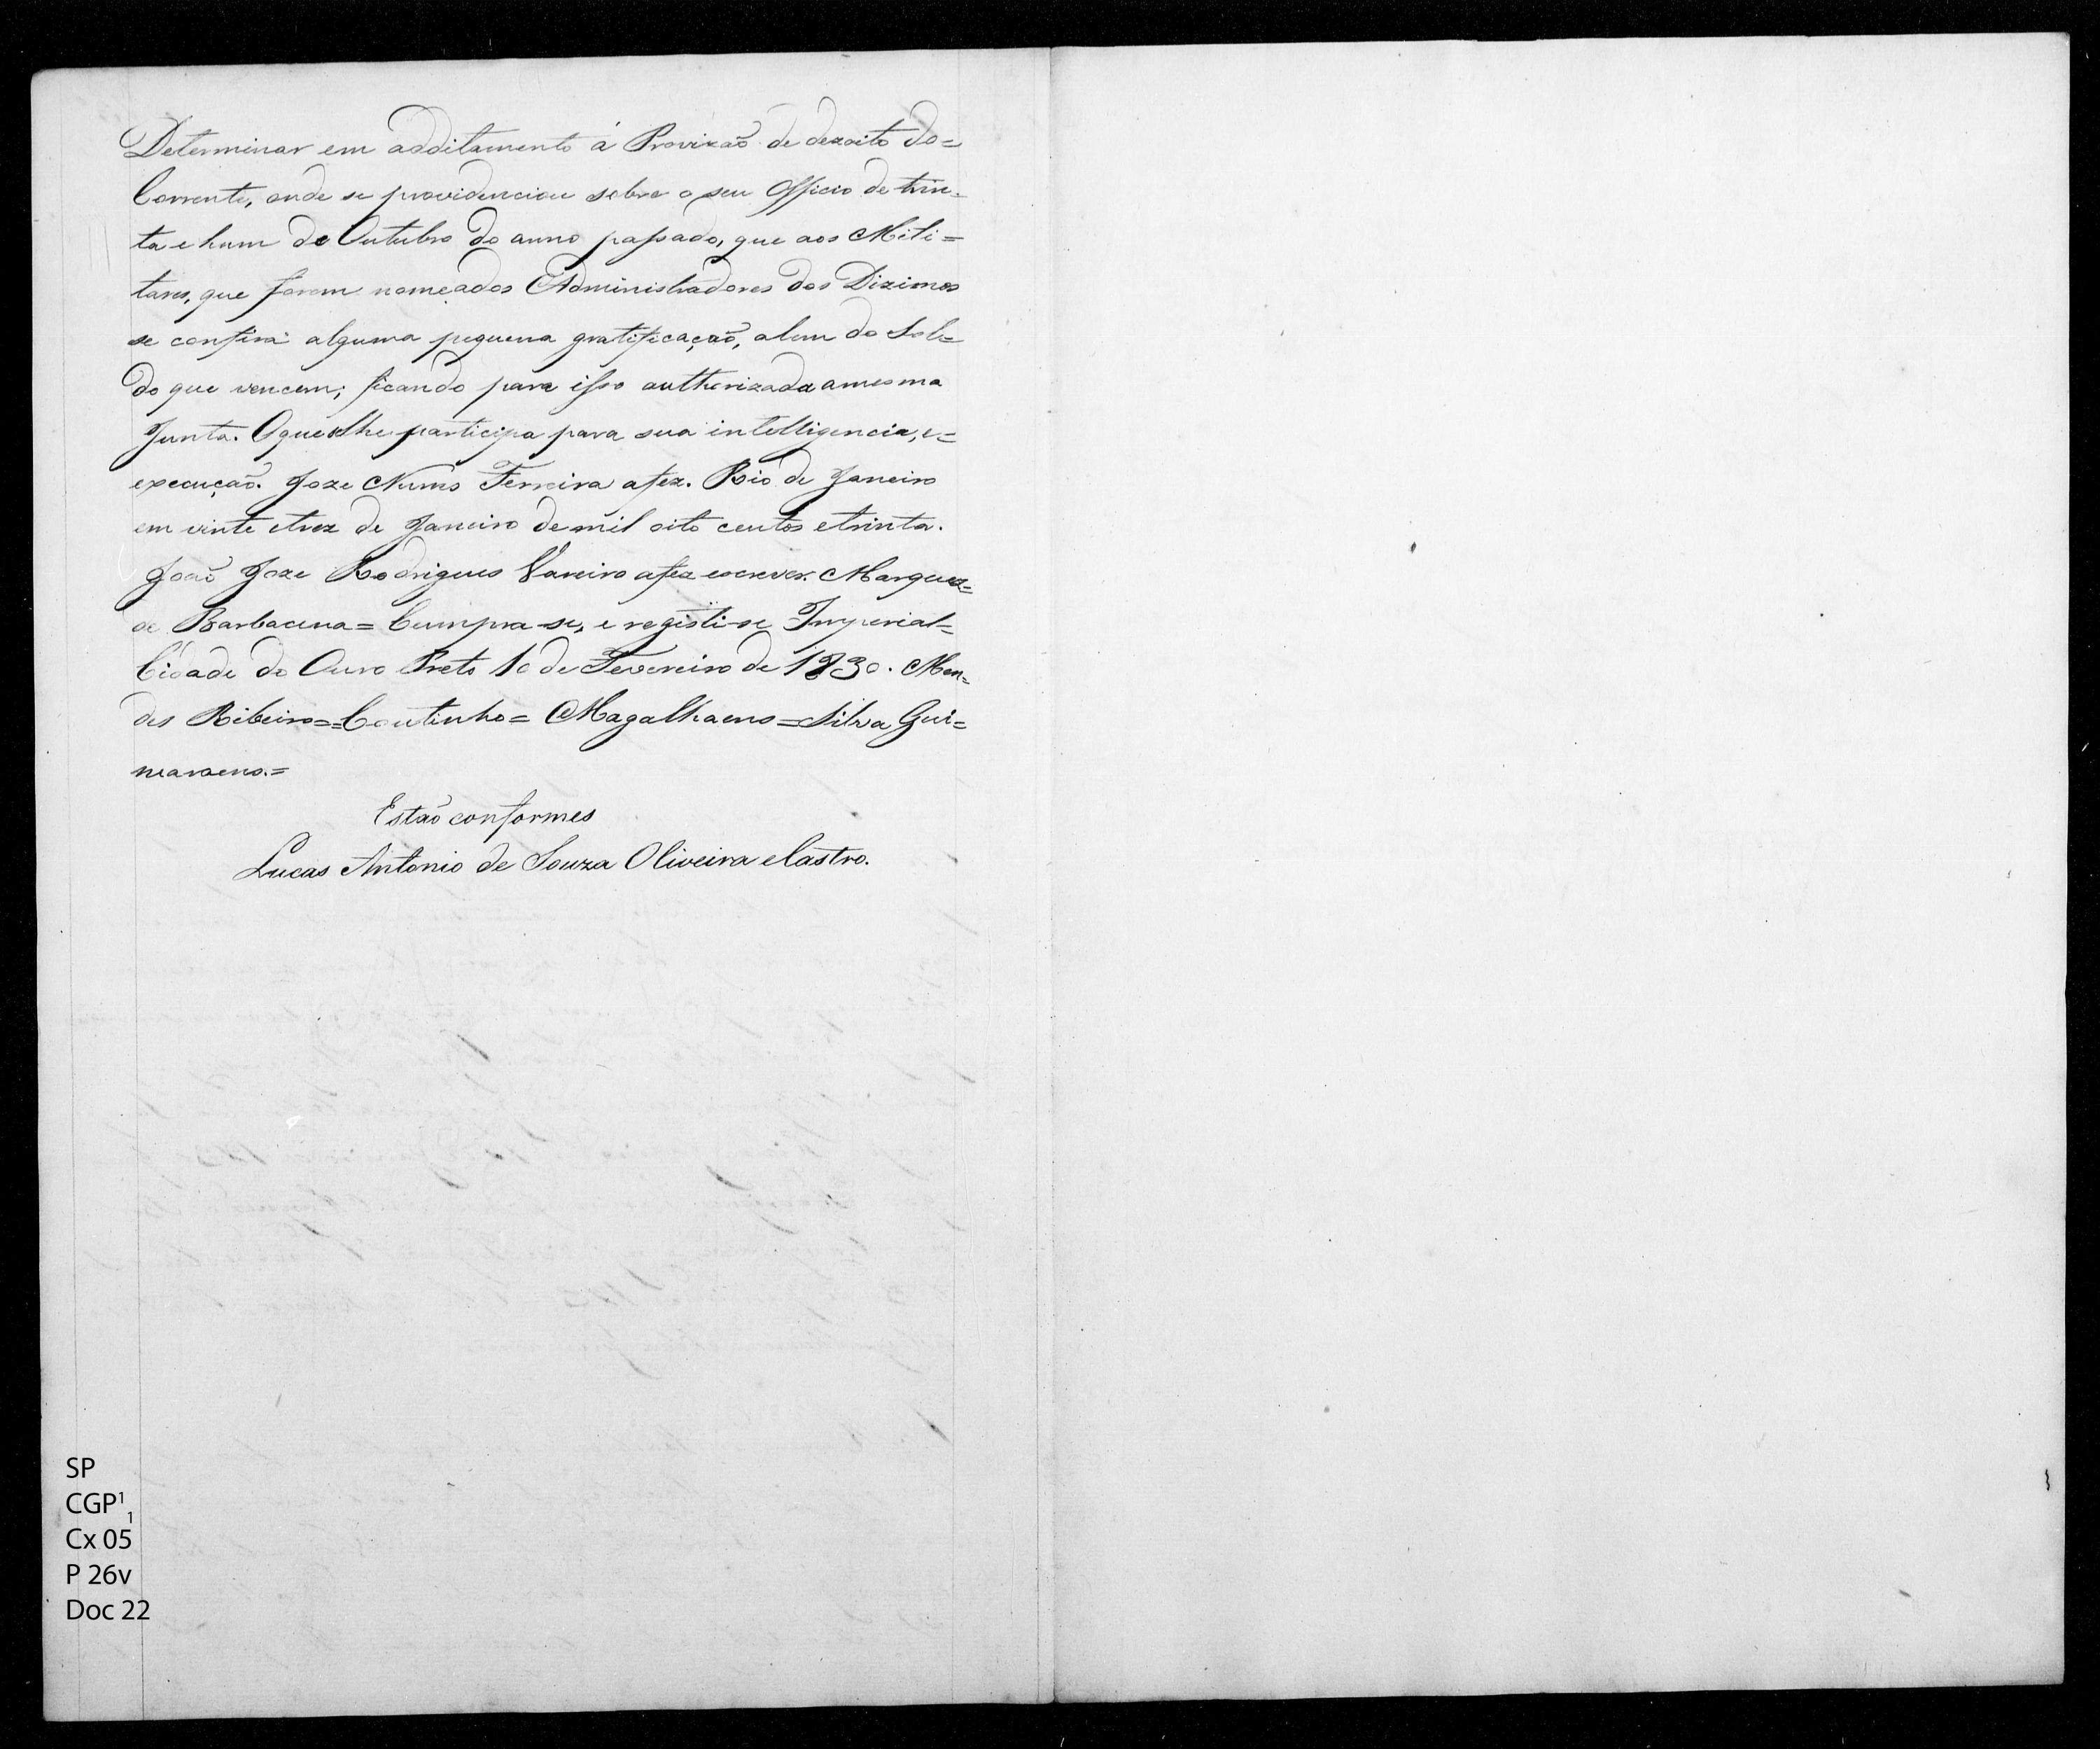 Determinar em additamento á Provizaõ de dezoito do=
Corrente, onde se providenciou sobre o seu Officio de trin-
ta e hum de Outubro do anno passado, que aos Mili=
tares, que forem nomeados Administradores dos Dizimos
se confira alguma pequena gratificaçaõ, alem do Sol=
do que vencem; ficando para isso authorizada amesma
Junta. Oque lhe participa para sua intelligencia, e=
execuçaõ. Joze Nunes Ferreira afez. Rio de Janeiro
em vinte etrez de Janeiro de mil oito centos etrinta.
Joaõ Joze Rodrigues Vareiro afez escrever. Marquez=
de Barbacena = Cumpra-se, e registi-se Imperial=
Cidade do Ouro Preto 10 de Fevereiro de 1830. Men=
des Ribeiro == Coutinho = Magalhaens = Silva Gui=
maraens. =
Estaõ conformes
Lucas Antonio de Souza Oliveira eCastro.
SP
CGP¹₁
Cx 05
P 26v
Doc 22